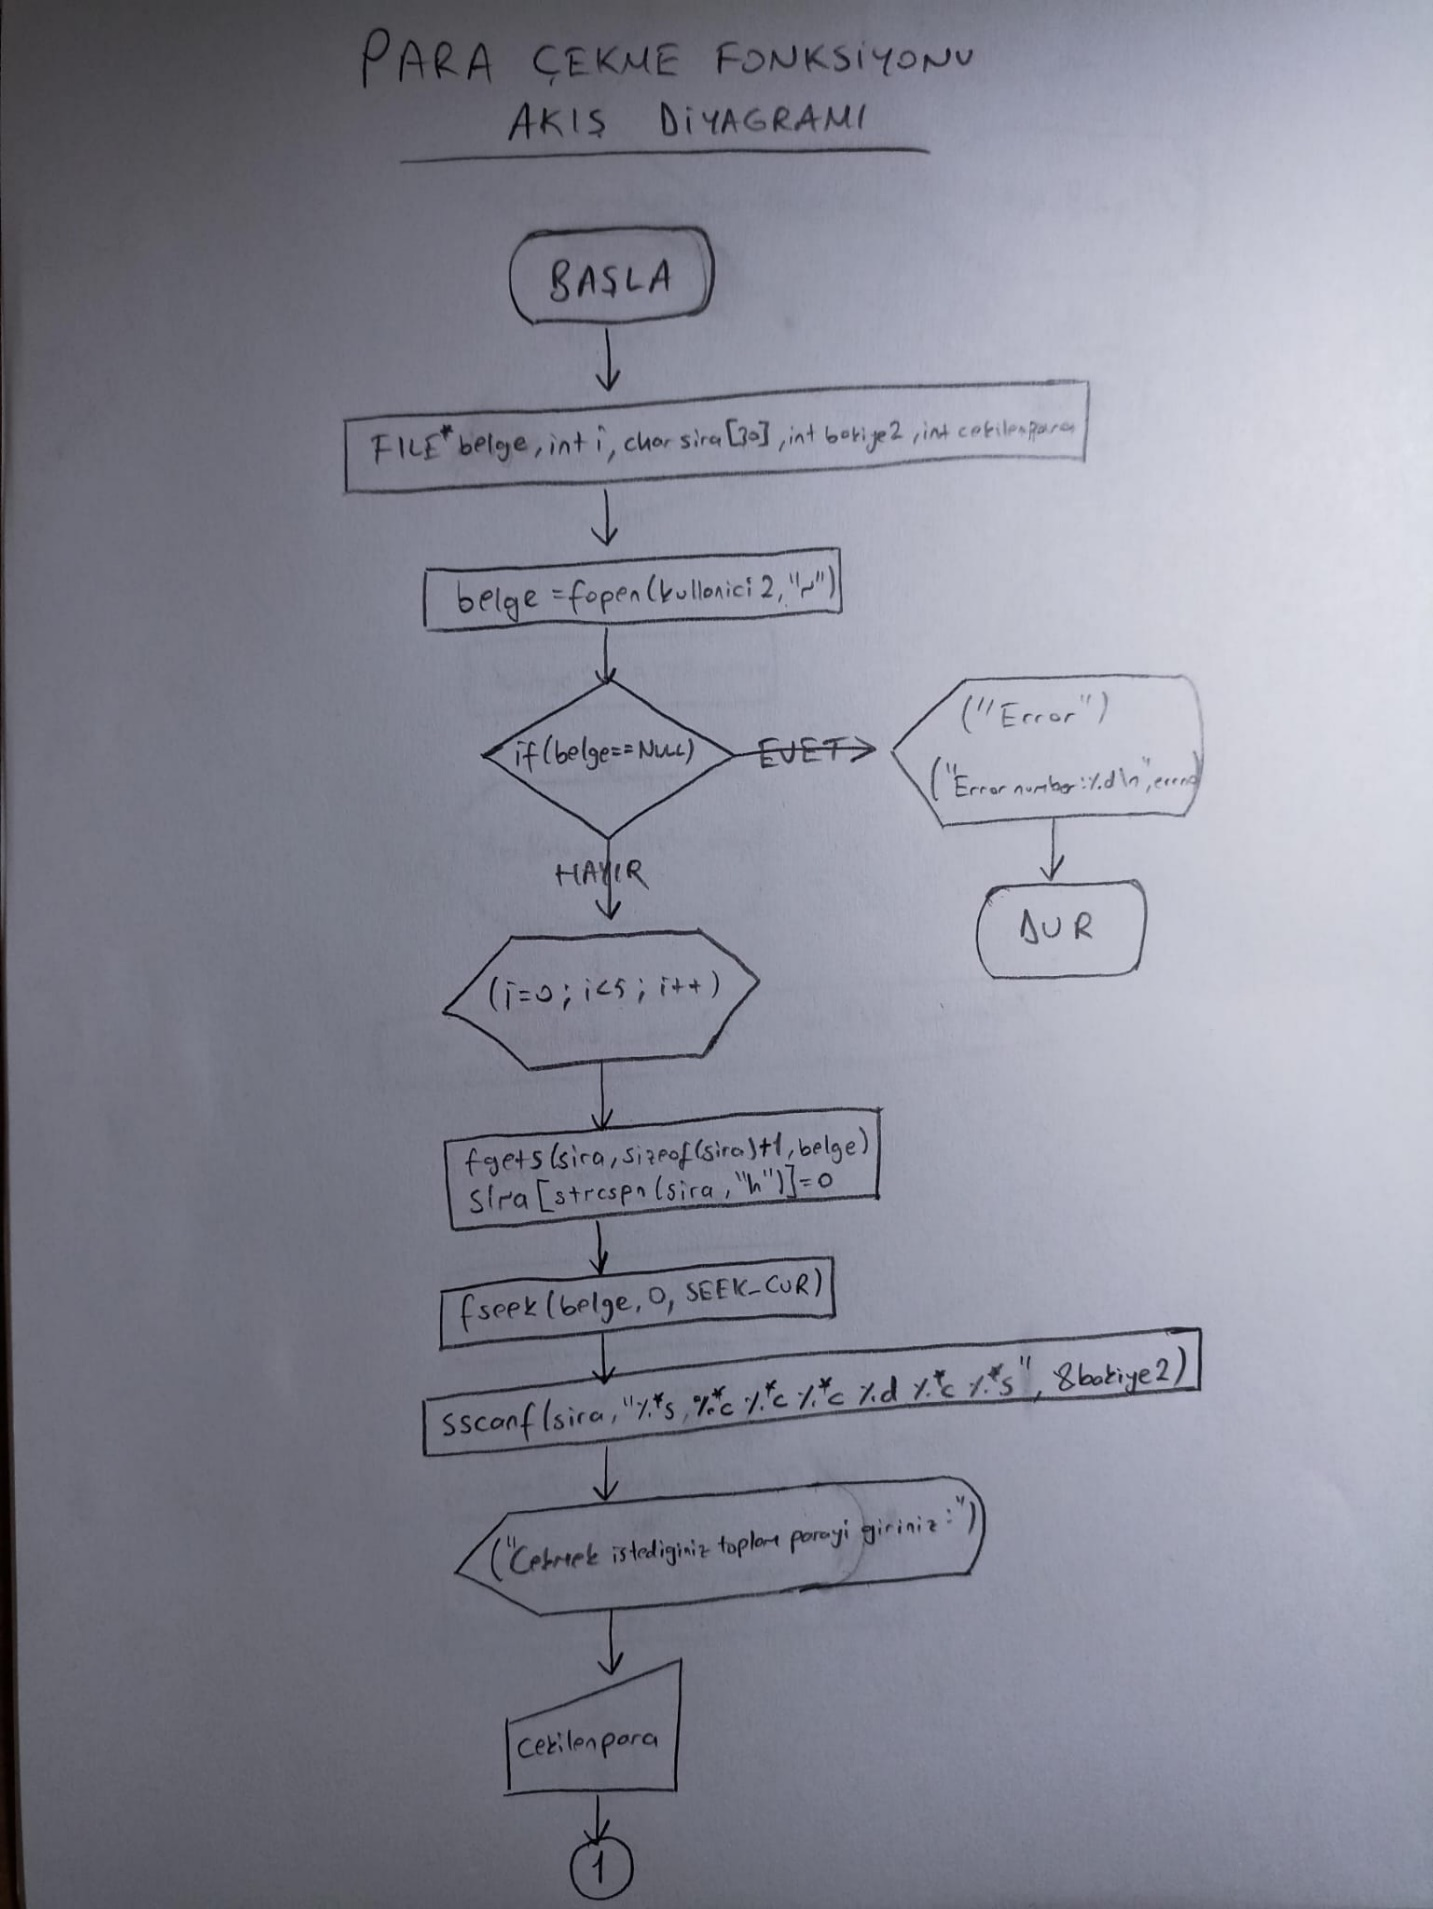 PARA ÇEKME FONKSİYONU
AKIŞ DİYAGRAMI
BAŞLA
FILE* belge, int i, char sira[30], int bakiye2, int cekilenpara
belge = fopen(kullanici2, "r")
if(belge==NULL)
EVET
("Error")
("Error number:%d\n", errno)
HAYIR
DUR
(i=0; i<5; i++)
fgets(sira, sizeof(sira)+1, belge)
sira[strcspn(sira, "\n")]=0
fseek(belge, 0, SEEK_CUR)
sscanf(sira, "%*s, %*c %*c %*c %d %*c %*s", &bakiye2)
("Cekmek istediginiz toplam parayi giriniz:")
cekilenpara
1